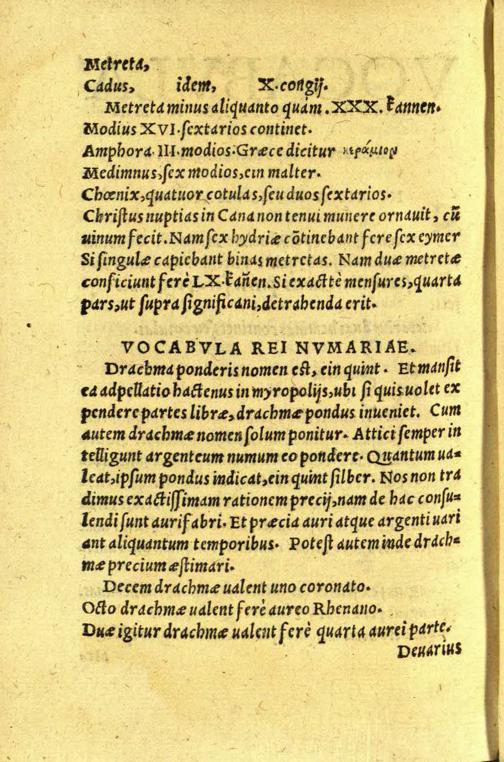 Metreta,
Cadus, idem, X. congij.
Metreta minus aliquanto quàm .XXX. kannen.
Modius XVI. sextarios continet.
Amphora. III. modios. Græce dicitur κεράμιον
Medimnus, sex modios, ein malter.
Chœnix, quatuor cotulas, seu duos sextarios.
Christus nuptias in Cana non tenui munere ornauit, cũ
uinum fecit. Nam sex hydriæ cõtinebant fere sex eymer
Si singulæ capiebant binas metretas. Nam duæ metretæ
conficiunt ferè LX. kañen. Si exactè mensures, quarta
pars, ut supra significani, detrahenda erit.
VOCABVLA REI NVMARIAE.
Drachma ponderis nomen est, ein quint. Et mansit
ea adpellatio hactenus in myropolijs, ubi si quis uolet ex
pendere partes libræ, drachmæ pondus inueniet. Cum
autem drachmæ nomen solum ponitur. Attici semper in
telligunt argenteum numum eo pondere. Quantum ua-
leat, ipsum pondus indicat, ein quint silber. Nos non tra
dimus exactissimam rationem precij, nam de hac consu-
lendi sunt aurifabri. Et præcia auri atque argenti uari
ant aliquantum temporibus. Potest autem inde drach-
mæ precium æstimari.
Decem drachmæ ualent uno coronato.
Octo drachmæ ualent ferè aureo Rhenano.
Duæ igitur drachmæ ualent ferè quarta aurei parte.
Devarius